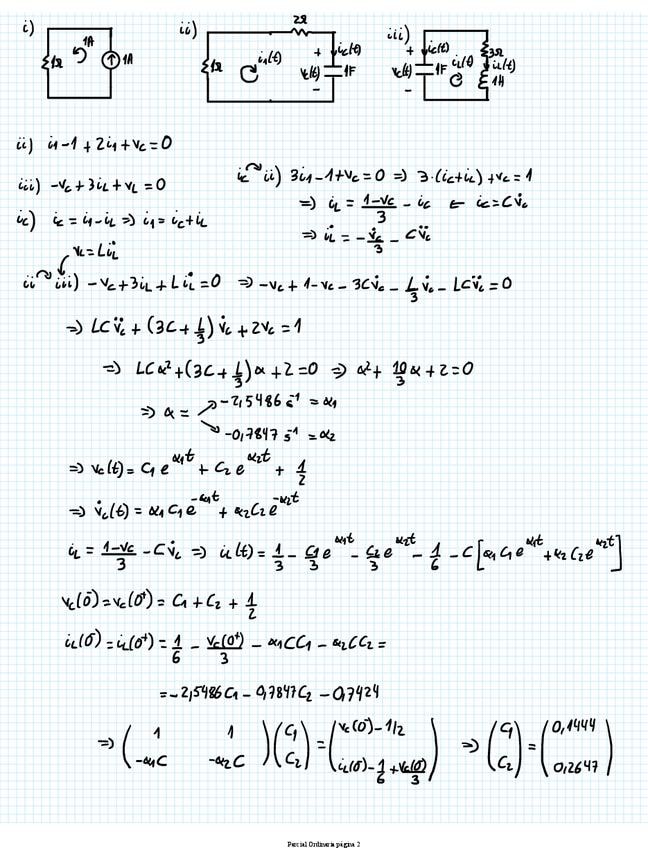 i) 1Ω 1A 1A
ii) 2Ω 1Ω i₁(t) + v_c(t) - i_c(t) 1F
iii) + v_c(t) - i_c(t) 1F i_L(t) 3Ω i_L(t) 1H
ii) i₁-1+2i₁+v_c=0
iii) -v_c+3i_L+v_L=0
i_c) i_c = i₁-i_L => i₁=i_c+i_L
v_L=Li̇_L
i_c ↷ ii) 3i₁-1+v_c=0 => 3·(i_c+i_L)+v_c=1
=> i_L = (1-v_c)/3 - i_c ← i_c=Cv̇_c
=> i̇_L = -v̇_c/3 - Cv̈_c
ii ↷ iii) -v_c+3i_L+Li̇_L=0 => -v_c+1-v_c-3Cv̇_c-L/3 v̇_c-LCv̈_c=0
=> LCv̈_c+(3C+L/3)v̇_c+2v_c=1
=> LCα²+(3C+L/3)α+2=0 => α²+10/3 α+2=0
=> α = -2,5486 s⁻¹ = α₁
-0,7847 s⁻¹ = α₂
=> v_c(t) = C₁e^α₁t + C₂e^α₂t + 1/2
=> v̇_c(t) = α₁C₁e^-α₁t + α₂C₂e^-α₂t
i_L = (1-v_c)/3 - Cv̇_c => i_L(t) = 1/3 - C₁/3 e^α₁t - C₂/3 e^α₂t - 1/6 - C[α₁C₁e^α₁t+α₂C₂e^α₂t]
v_c(0⁻)=v_c(0⁺)= C₁+C₂+1/2
i_L(0⁻)=i_L(0⁺)= 1/6 - v_c(0⁺)/3 - α₁CC₁ - α₂CC₂ =
= -2,5486C₁ - 0,7847C₂ - 0,7424
=> (1 1; -α₁C -α₂C)(C₁; C₂) = (v_c(0⁻)-1/2; i_L(0⁻)-1/6+v_c(0)/3) => (C₁; C₂) = (0,1444; 0,2647)
Parcial Ordinaria página 2